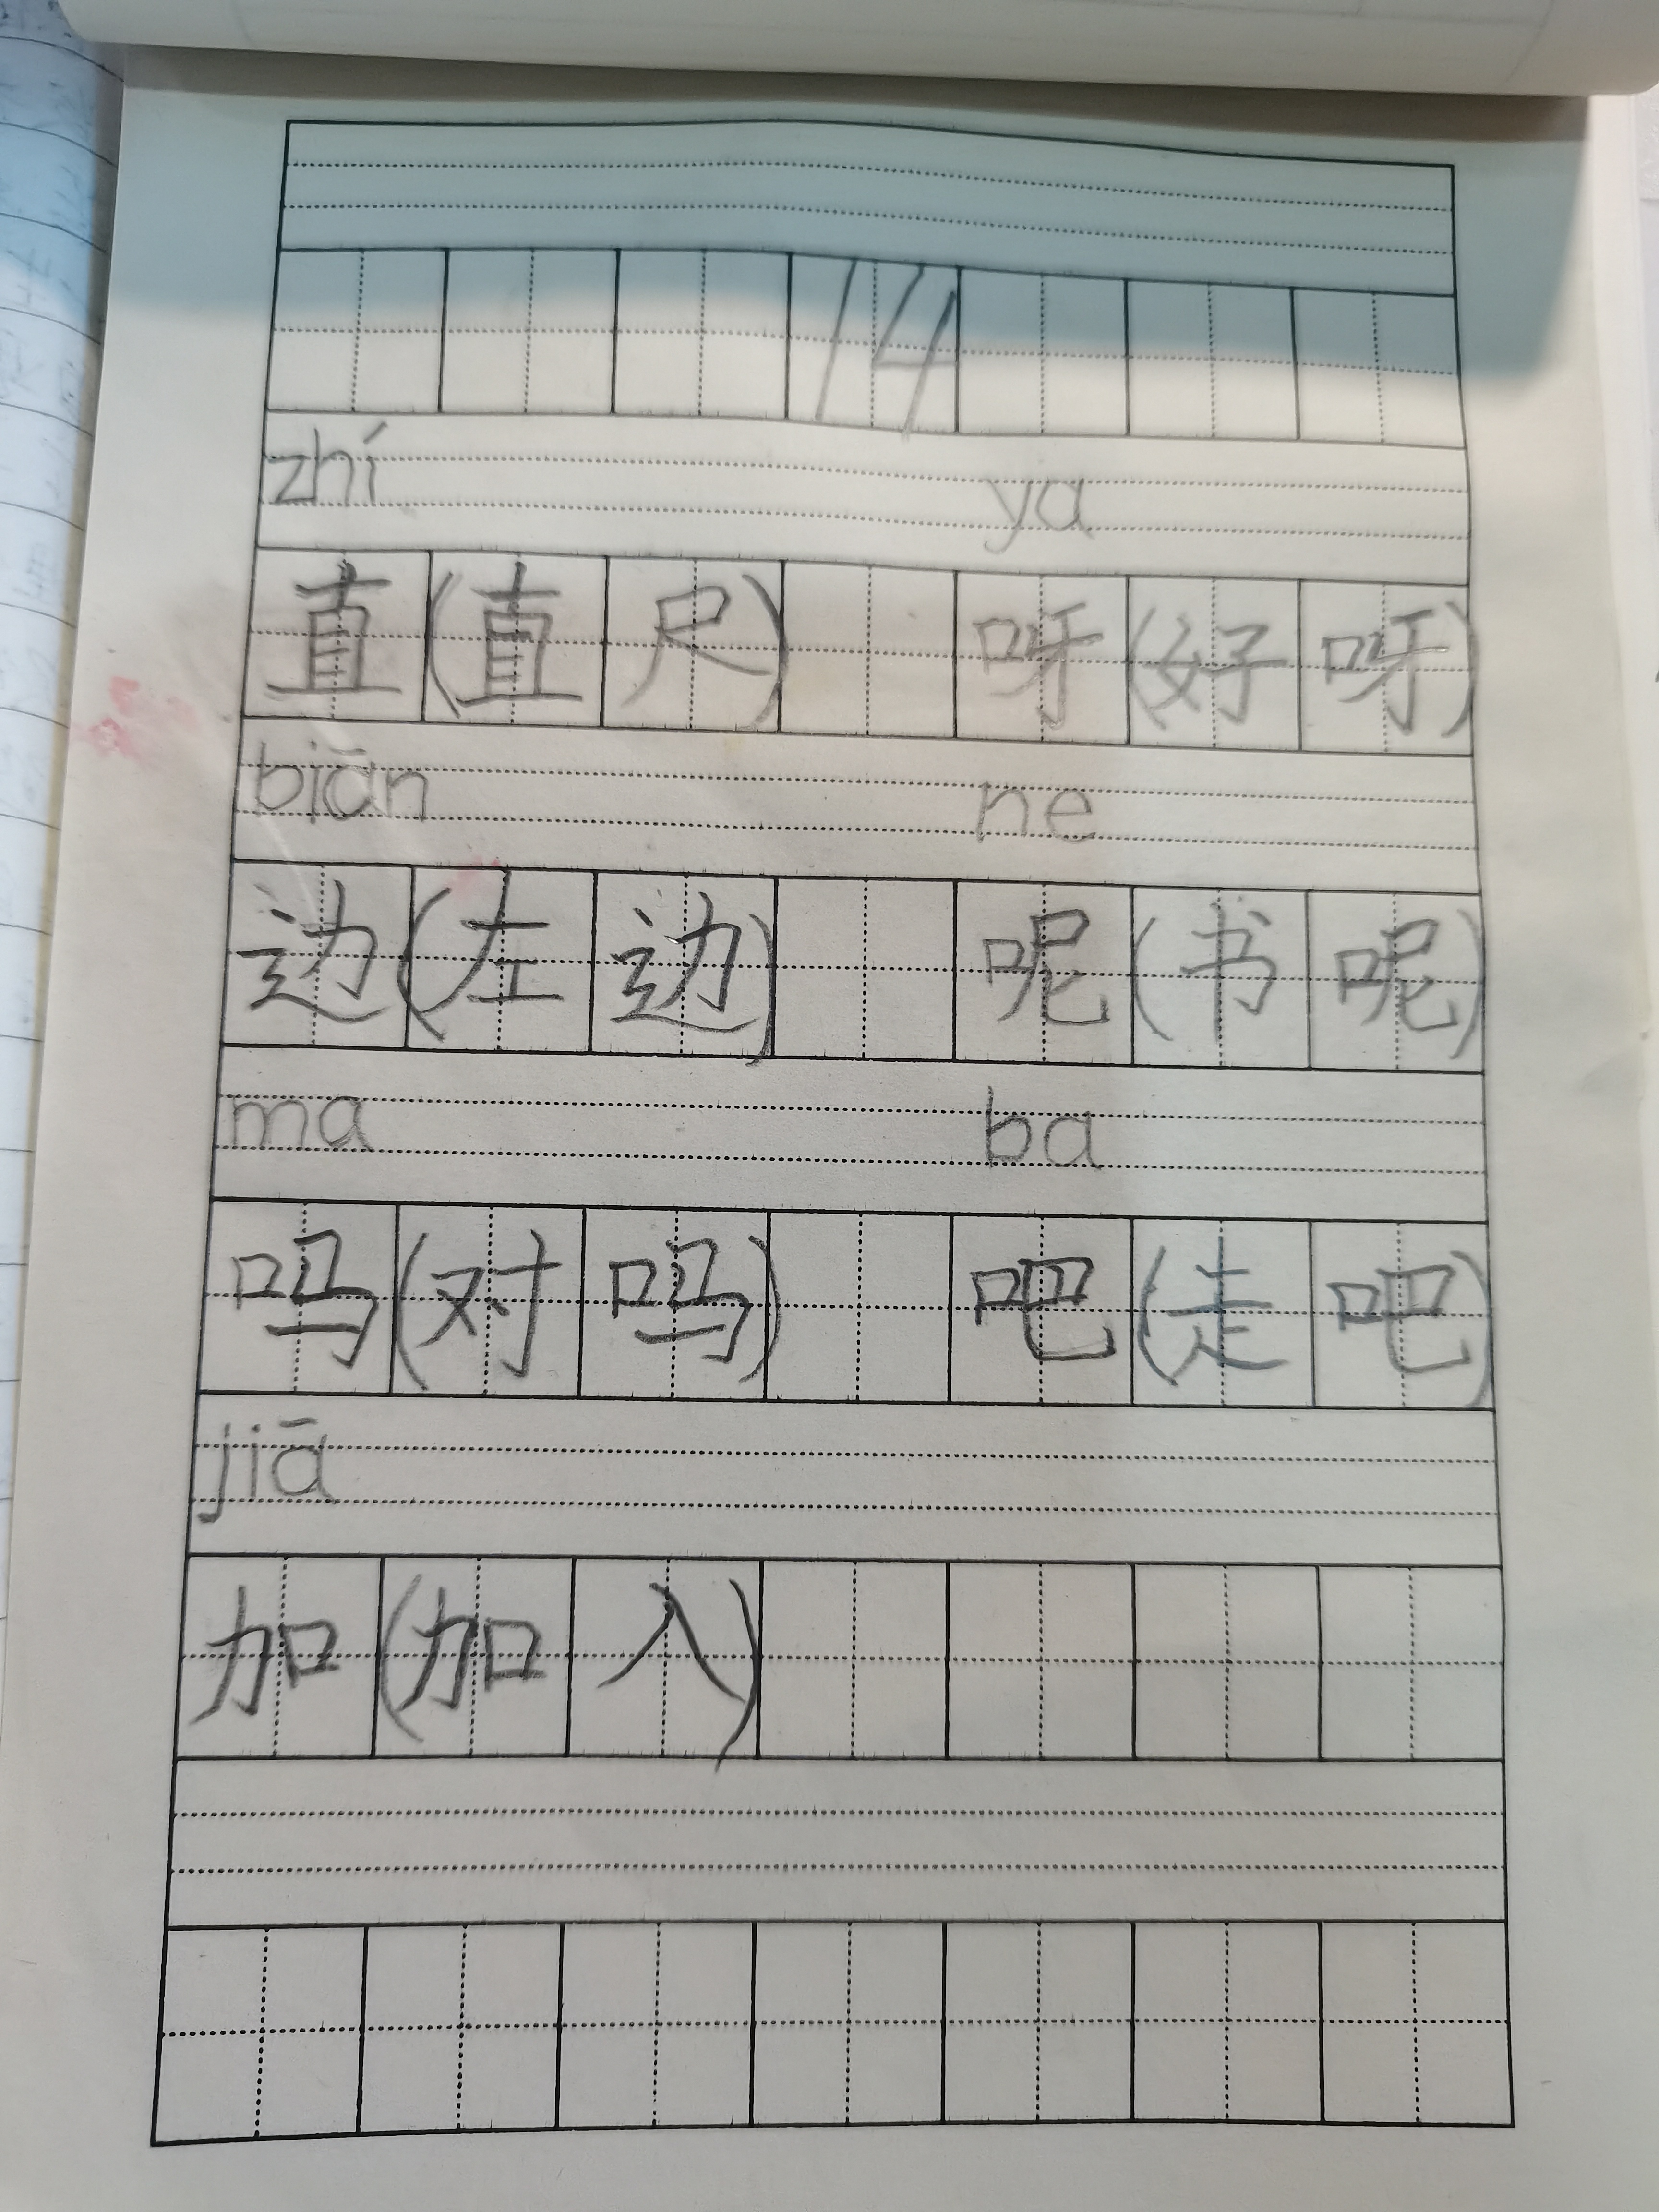 14
zhí ya
直(直尺) 呀(好呀)
biān ne
边(左边) 呢(书呢)
ma ba
吗(对吗) 吧(走吧)
jiā
加(加入)